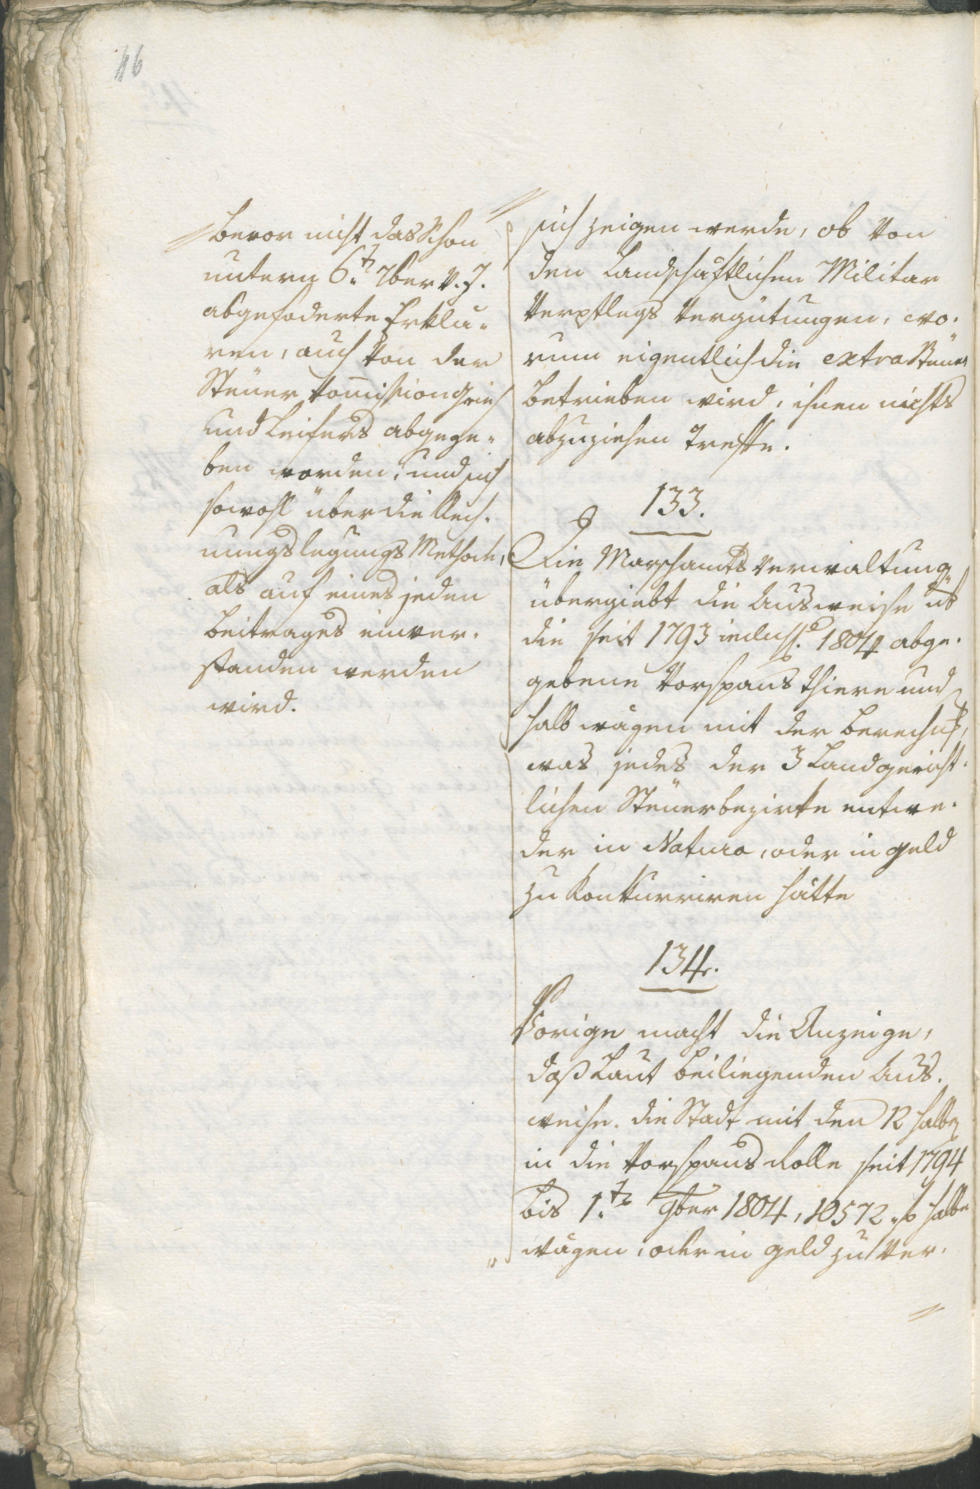 46
bevor nicht das schon
untern 6t. 7ber v. J.
abgefoderte Erklä-
ren, auch von der
Steuer Kommission Gries
und Leifers abgege-
ben worden, und sich
sowohl über die Rech-
nungslegungs Methode,
als auf eines jeden
Beitrages einver-
standen werden
wird.
sich zeigen werde, ob von
den Landschäftlichen Militar
Verpflegs Vergütungen, wo-
rum eigentlich die extra Steuer
betrieben wird, ihnen nichts
abzuziehen treffe.
133.
Die Marschamts Verwaltung
übergiebt die Ausweise üb
die seit 1793 inclus. 1804 abge-
gebene Vorspans Thiere und
halb wägen mit der Berechng,
was jedes der 3 Landgericht-
lichen Steuerbezirke entwe-
der in Natura, oder in Geld
zu konkurriren hätte
134.
Vorige macht die Anzeige,
daß Laut beiliegenden Aus-
weise die Stadt mit den 12 halbe
in die Vorspans Rolle seit 1794
bis 1.ts 9ber 1804, 10572 halbe
wägen, oder in Geld zu ver-